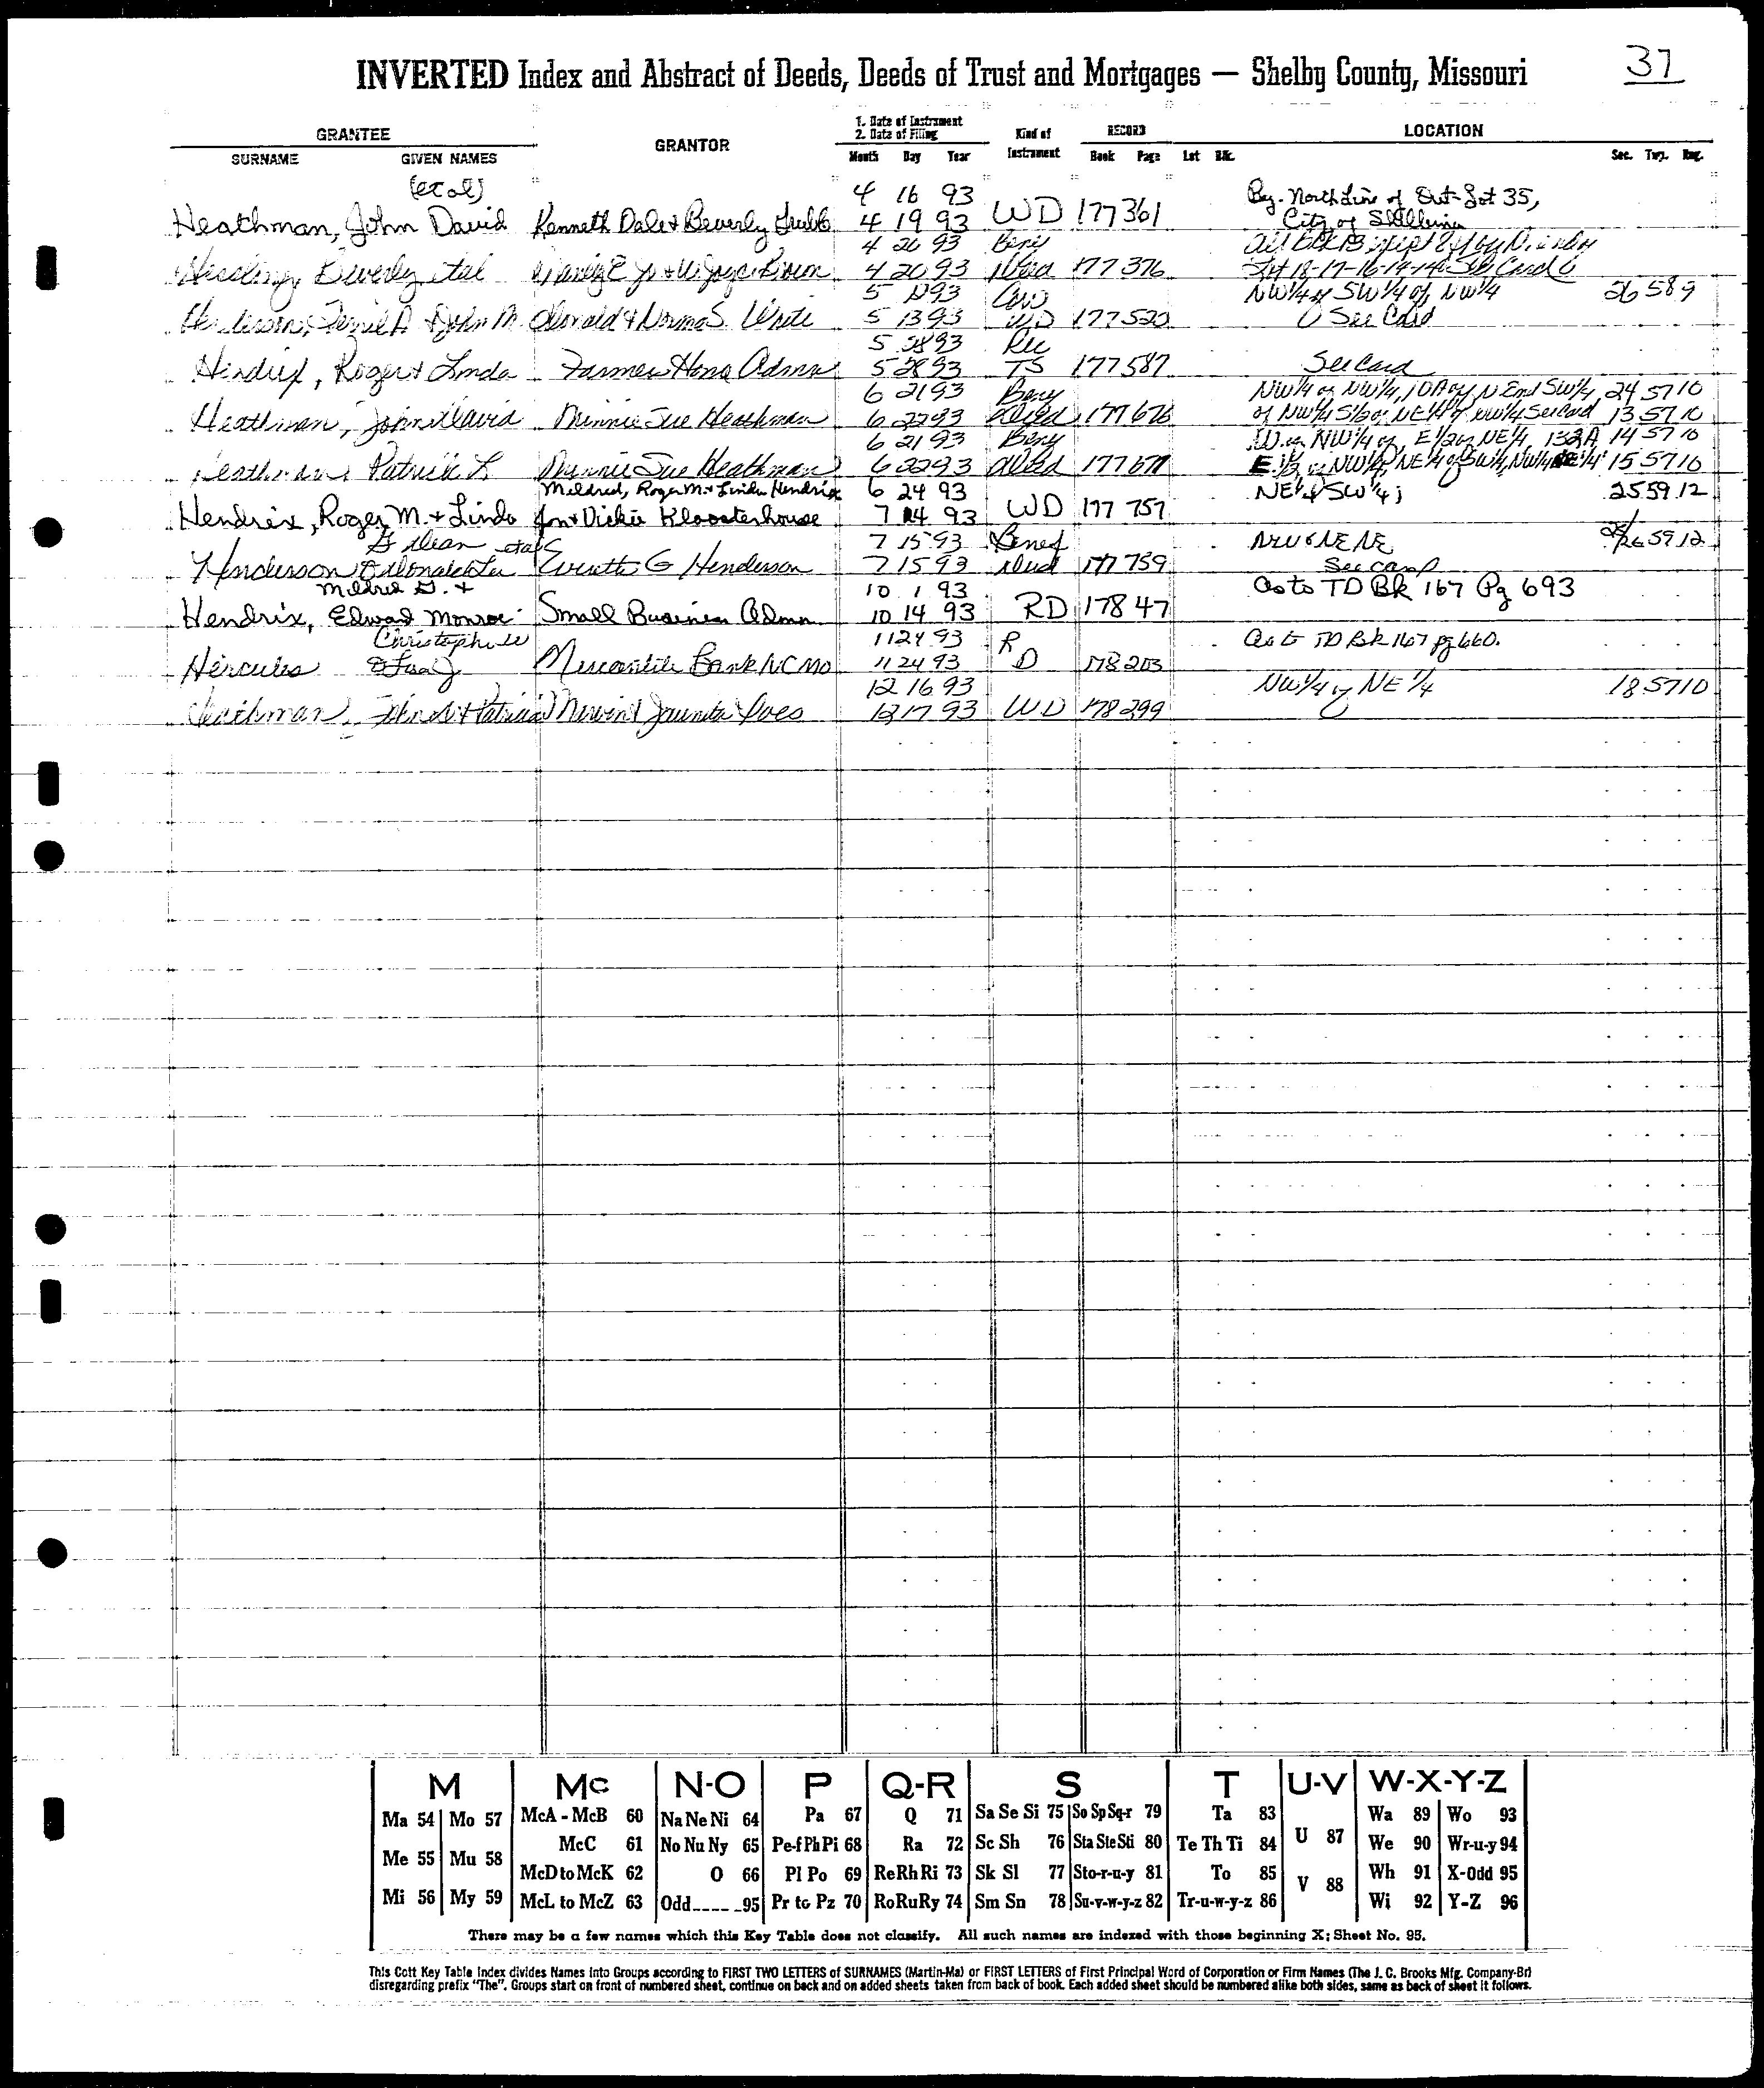 INVERTED Index and Abstract of Deeds, Deeds of Trust and Mortgages — Shelby County, Missouri 37
GRANTEE GRANTOR 1. Date of Instrument 2. Date of Filing Kind of Instrument RECORD LOCATION
SURNAME GIVEN NAMES Month Day Year Book Page Lot Blk. Sec. Twp. Rng.
(et al) 4 16 93 Beg. North Line of Out-Lot 35,
Heathman, John David Kenneth Dale & Beverly 4 19 93 WD 177 361 City of
4 20 93 Beny
Beverly etal Joyce Brown 4 20 93 Deed 177 376 Lot 18-17-16- See Card
5 93 NW 1/4 of SW 1/4 of NW 1/4 26 58 9
& John M. Donald & Norma S. White 5 13 93 WD 177 520 See Card
5 28 93 Rec
Hendrix, Roger & Linda Farmers Home Admn 5 28 93 TS 177 587 See Card
6 21 93 Beny NW 1/4 of NW 1/4, 10A of N End SW 1/4, 24 57 10
Heathman, John David Minnie Sue Heathman 6 22 93 Deed 177 676 of NW 1/4 S 1/2 of NE 1/4 of NW 1/4 See Card 13 57 10
6 21 93 Beny W. of NW 1/4 of, E 1/2 of NE 1/4, 132A 14 57 10
Heathman, Patrick L. Minnie Sue Heathman 6 22 93 Deed 177 677 E. 1/2 of NW 1/4, NE 1/4 of SW 1/4, NW 1/4 SE 1/4 15 57 10
Mildred, Roger M. & Linda Hendrix 6 24 93 NE 1/4 SW 1/4; 25 59 12
Hendrix, Roger M. & Linda Jon & Vickie Kloosterhouse 7 14 93 WD 177 757
G Dean etal 7 15 93 Benef NW & NE NE 26 59 12
Henderson G Henderson 7 15 93 Deed 177 759 See Card
Mildred G. & 10 1 93 As to TD Bk 167 Pg 693
Hendrix, Edward Monroe Small Business Admn 10 14 93 RD 178 47
Christopher W 11 24 93 R As to TD Bk 167 pg 660.
Hercules & Lisa J Mercantile Bank NC MO 11 24 93 D 178 203
12 16 93 NW 1/4 of NE 1/4 18 57 10
Heathman, John & Patricia Mervin & Juanita 12 17 93 WD 178 299
M Mc N-O P Q-R S T U-V W-X-Y-Z
Ma 54 Mo 57 McA - McB 60 Na Ne Ni 64 Pa 67 Q 71 Sa Se Si 75 So Sp Sq-r 79 Ta 83 U 87 Wa 89 Wo 93
Me 55 Mu 58 McC 61 No Nu Ny 65 Pe-f Ph Pi 68 Ra 72 Sc Sh 76 Sta Ste Sti 80 Te Th Ti 84 We 90 Wr-u-y 94
McD to McK 62 O 66 Pl Po 69 Re Rh Ri 73 Sk Sl 77 Sto-r-u-y 81 To 85 V 88 Wh 91 X-Odd 95
Mi 56 My 59 McL to McZ 63 Odd 95 Pr to Pz 70 Ro Ru Ry 74 Sm Sn 78 Su-v-w-y-z 82 Tr-u-w-y-z 86 Wi 92 Y-Z 96
There may be a few names which this Key Table does not classify. All such names are indexed with those beginning X; Sheet No. 95.
This Cott Key Table Index divides Names into Groups according to FIRST TWO LETTERS of SURNAMES (Martin-Ma) or FIRST LETTERS of First Principal Word of Corporation or Firm Names (The J. C. Brooks Mfg. Company-Br)
disregarding prefix "The". Groups start on front of numbered sheet, continue on back and on added sheets taken from back of book. Each added sheet should be numbered alike both sides, same as back of sheet it follows.